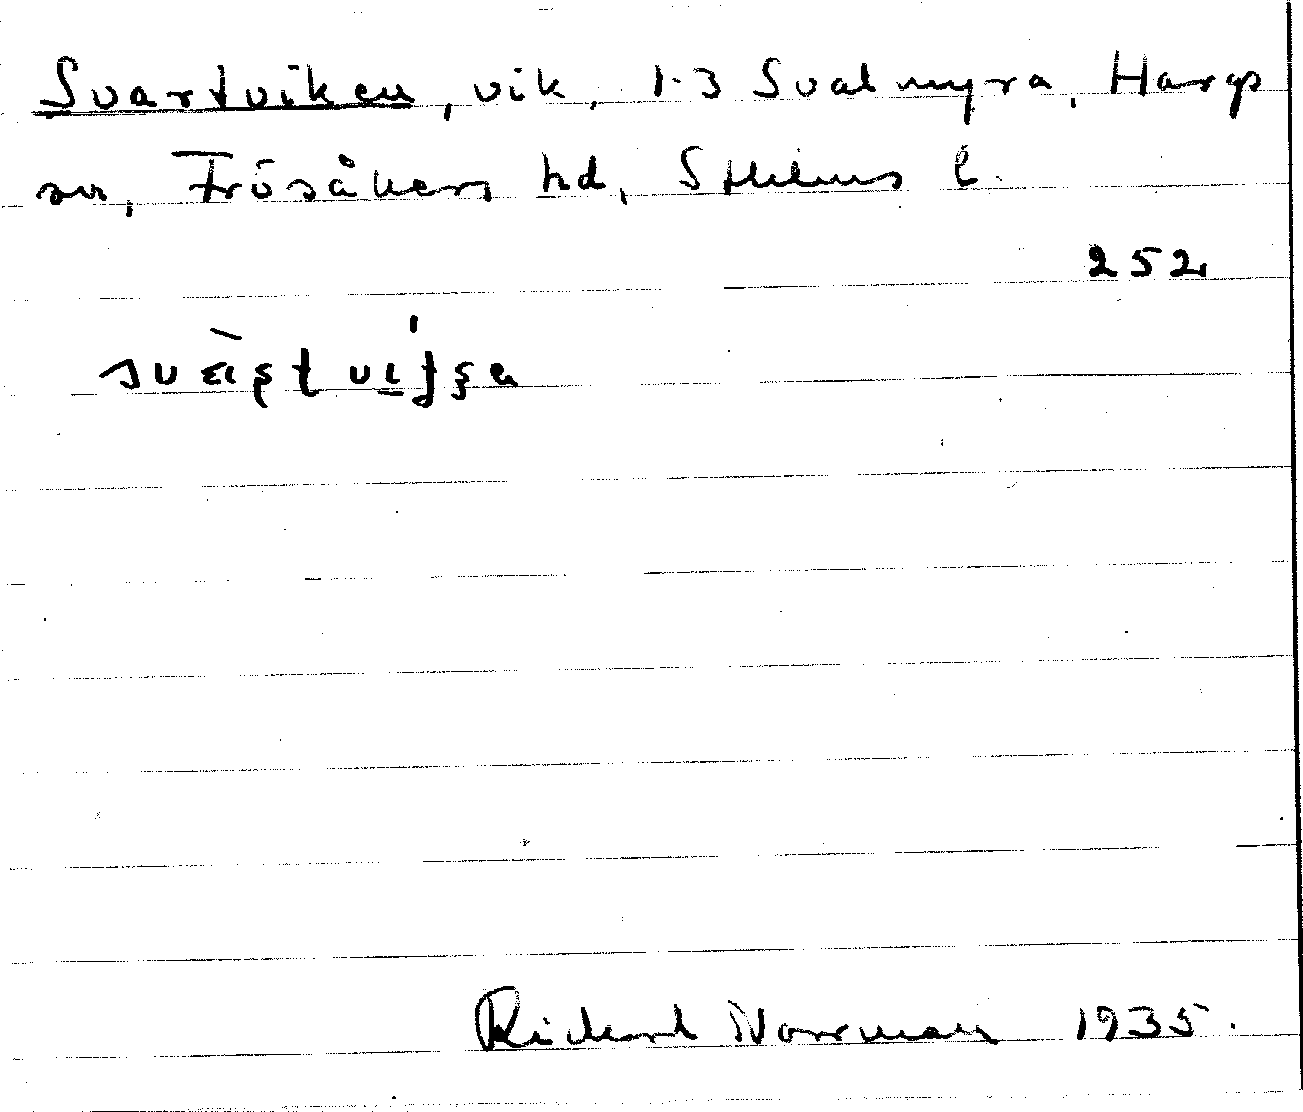 Svartviken, vik, 1-3 Svalmyra, Hargs
sn, Frösåkers hd, Sthlms l.
252
Richard Norrman 1935.